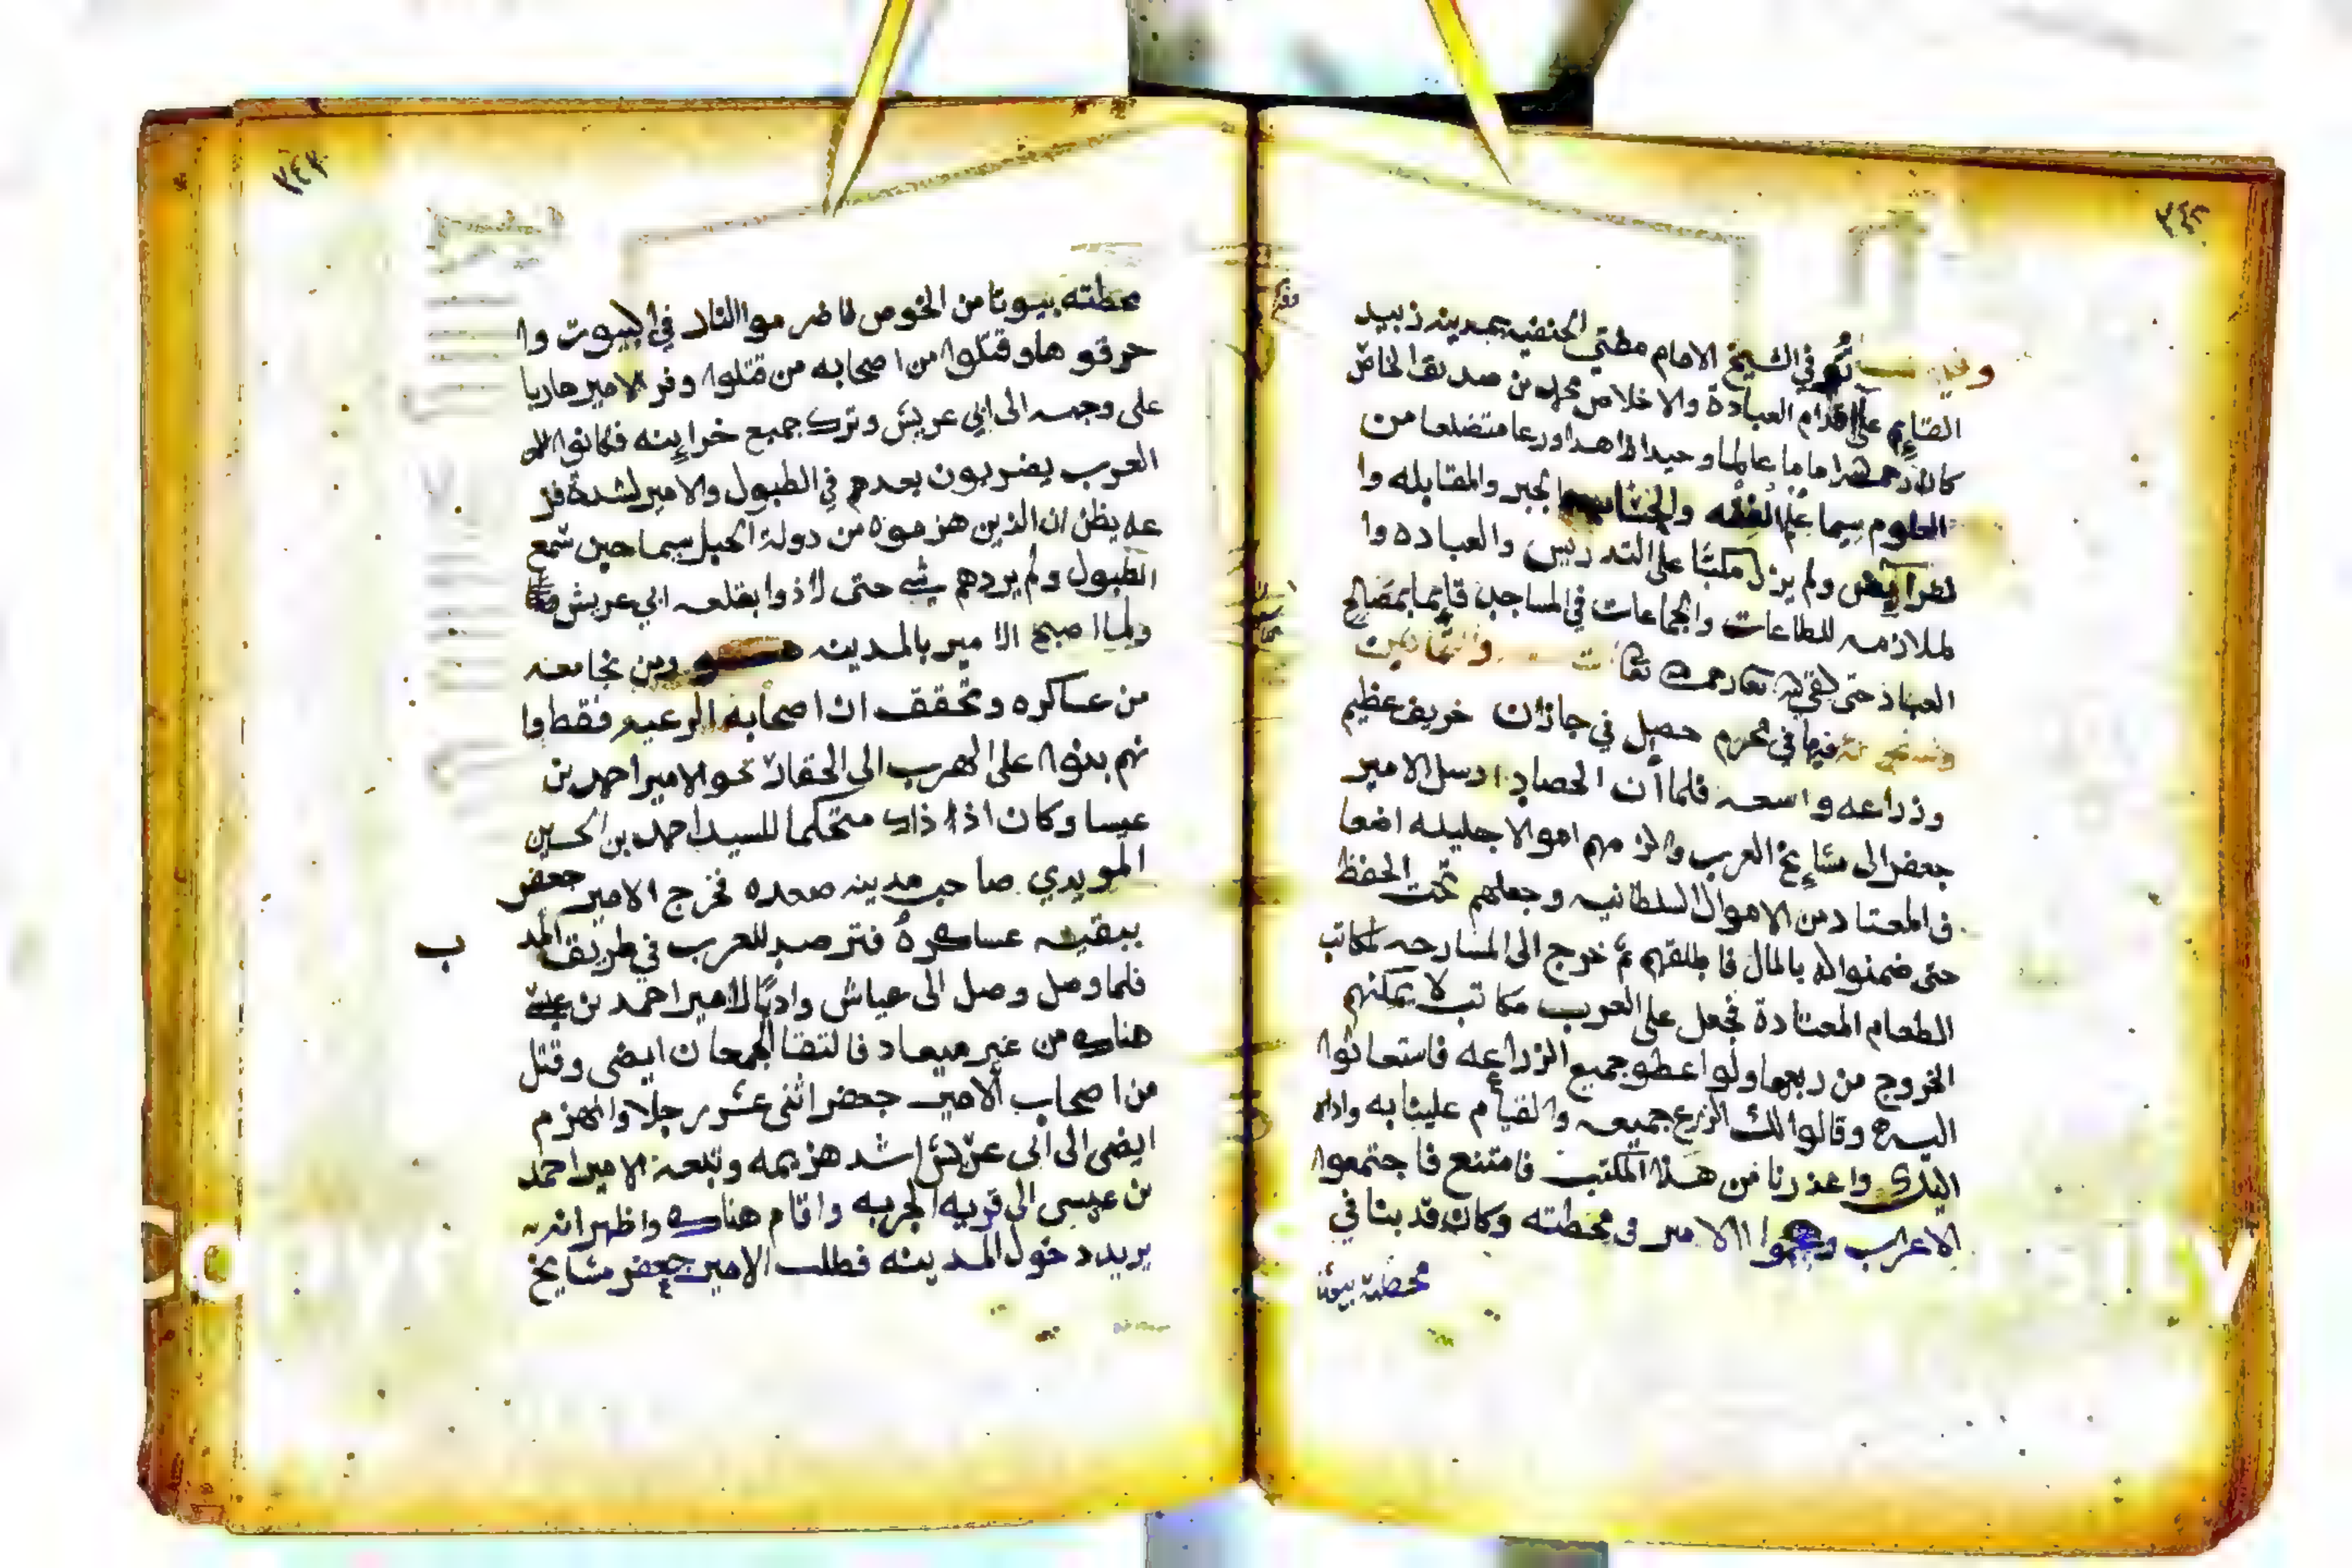 ٣٤٢
توفي الشيخ الامام مفتي الحنفيه بمدينة زبيد
القايم على اقدام العبادة والاخلاص محمد بن صديق الخاص
كان رحمه الله اماما عالما وحيدا زاهدا ورعا متضلعا من
العلوم سيما علم الفقه والحساب والجبر والمقابله وا
لفرايض ولم يزل مكبا على التدريس والعباده وا
لملازمه للطاعات والجماعات في المساجد قايما بمصالح
العباد حتى لقي الله تعا رحمه الله تعا والثمانين
فيها في محرم حصل في جازان خريف عظيم
وزراعه واسعه فلما آن الحصاد ارسل الامير
جعفر الى مشايخ العرب والزمهم اموالا جليله اضعا
ف المعتاد من الاموال السلطانيه وجعلهم تحت الحفظ
حتى ضمنوا له بالمال فاطلقهم ثم خرج الى المسارحه لمكاتب
الطعام المعتادة فجعل على العرب مكاتب لا يمكنهم
الخروج من ربعها ولو اعطو جميع الزراعه فاستعانوا
اليه وقالوا لك الزرع جميعه والقيام علينا به واداه
البنادر واعذرنا من هذا المكتب فامتنع فاجتمعوا
الاعراب وهجموا الامير في محطته وكان قد بنا في
محطته بيوتا
٣٤٣
محطته بيوتا من الخوص فاضرموا النار في البيوت وا
حرقوها وقتلوا من اصحابه من قتلوا وفر الامير هاربا
على وجهه الى ابي عريش وترك جميع خزاينه فكانوا
العرب يضربون بعدهم في الطبول والامير لشدة فز
عه يظن ان الذين هزموه من دولة الجبل سيما حين سمع
الطبول ولم يردهم شي حتى لاذوا بقلعه ابي عريش
ولما اصبح الامير بالمدينه هو ومن نجا معه
من عساكره وتحقق ان اصحابه الرعيه فقط وا
نهم بنوا على الهرب الى الحقار نحو الامير احمد بن
عيسا وكان اذ ذاك متحكما للسيد احمد بن الحسين
المويدي صاحب مدينه صعده فخرج الامير جعفر
ببقيه عساكره فترصد للعرب في طريق المد
ب
فلما وصل وصل الى عياش وادبا الامير احمد بن عيسى
هناك من غير ميعاد فالتقا الجمعان ايضى وقتل
من اصحاب الامير جعفر اثنى عشر رجلا وانهزم
ايضى الى ابى عريش اشد هزيمه وتبعه الامير احمد
بن عيسى الى قريه الجربه واقام هناك واظهر انه
يريد دخول المدينه فطلب الامير جعفر مشايخ